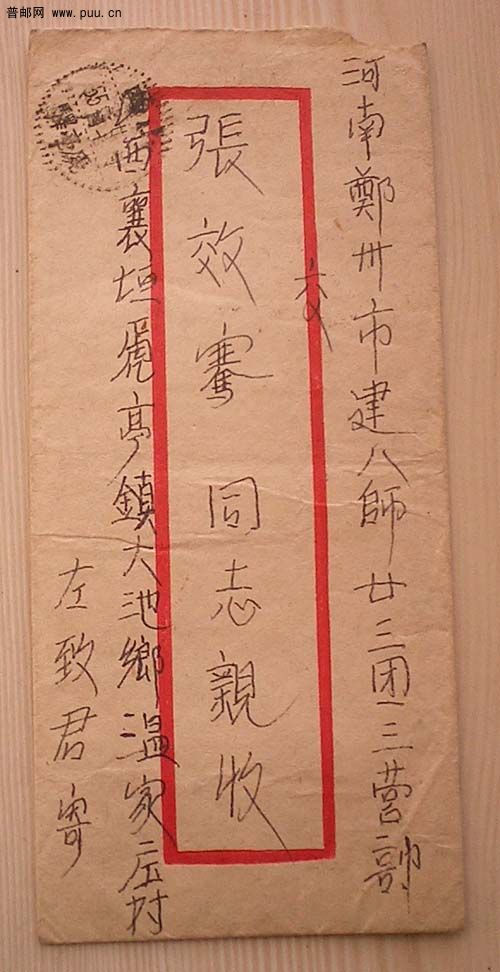 普邮网 www.puu.cn
河南鄭州市建八師廿三团三营部
交
張效骞同志親收
山西襄垣虒亭鎮大池鄉温家庄村
左致君寄